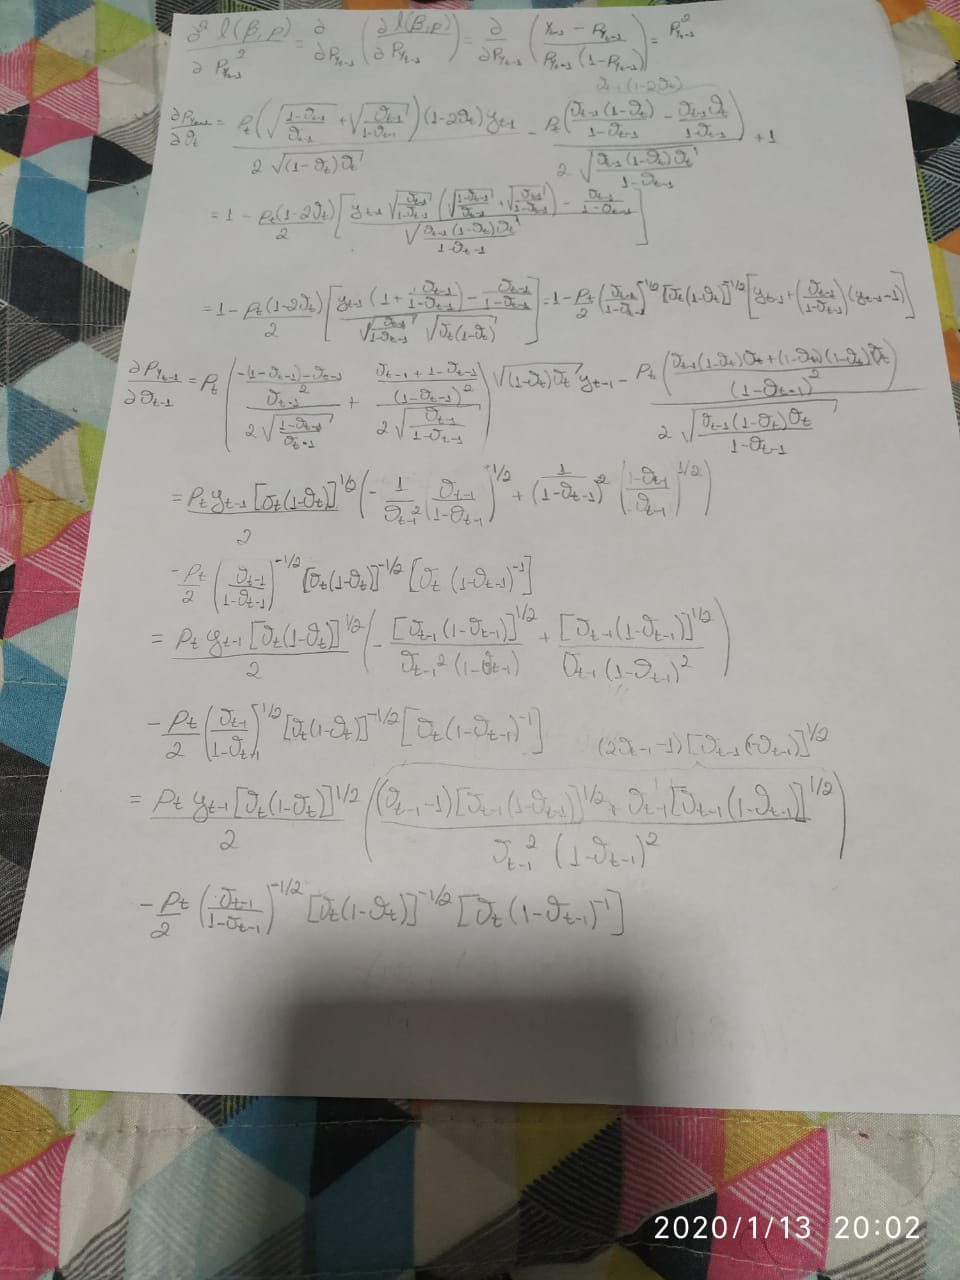 ∂² l(β,ρ) / ∂P_{y_{t-1}}² = ∂/∂P_{y_{t-1}} (∂l(β,ρ) / ∂P_{y_{t-1}}) = ∂/∂P_{y_{t-1}} ((y_{t-1} − P_{y_{t-1}}) / (P_{y_{t-1}} (1−P_{y_{t-1}}))) = P²_{y_{t-1}}
ϑ_{t-1} (1−2ϑ_t)
∂P_{y_{t-1}}/∂ϑ_t = ρ_t (√((1−ϑ_{t-1})/ϑ_{t-1}) + √(ϑ_{t-1}/(1−ϑ_{t-1}))) (1−2ϑ_t) y_{t-1} / (2√((1−ϑ_t)ϑ_t)) − ρ_t (ϑ_{t-1}(1−ϑ_t)/(1−ϑ_{t-1}) − ϑ_{t-1}ϑ_t/(1−ϑ_{t-1})) / (2√(ϑ_{t-1}(1−ϑ_t)ϑ_t/(1−ϑ_{t-1}))) + 1
= 1 − ρ_t(1−2ϑ_t)/2 [ (y_{t-1} √(ϑ_{t-1}/(1−ϑ_{t-1})) (√((1−ϑ_{t-1})/ϑ_{t-1}) + √(ϑ_{t-1}/(1−ϑ_{t-1}))) − ϑ_{t-1}/(1−ϑ_{t-1})) / √(ϑ_{t-1}(1−ϑ_t)ϑ_t/(1−ϑ_{t-1})) ]
= 1 − ρ_t(1−2ϑ_t)/2 [ (y_{t-1} (1 + ϑ_{t-1}/(1−ϑ_{t-1})) − ϑ_{t-1}/(1−ϑ_{t-1})) / (√(ϑ_{t-1}/(1−ϑ_{t-1})) √(ϑ_t(1−ϑ_t))) ] = 1 − ρ_t/2 (ϑ_{t-1}/(1−ϑ_{t-1}))^{1/2} [ϑ_t(1−ϑ_t)]^{1/2} [y_{t-1} + (ϑ_{t-1}/(1−ϑ_{t-1})) (y_{t-1} − 1)]
∂P_{y_{t-1}}/∂ϑ_{t-1} = ρ_t ( ((−(1−ϑ_{t-1})−ϑ_{t-1})/ϑ_{t-1}²) / (2√((1−ϑ_{t-1})/ϑ_{t-1})) + ((ϑ_{t-1} + 1−ϑ_{t-1})/(1−ϑ_{t-1})²) / (2√(ϑ_{t-1}/(1−ϑ_{t-1}))) ) √((1−ϑ_t)ϑ_t) y_{t-1} − ρ_t ((ϑ_{t-1}(1−ϑ_t)ϑ_t + (1−ϑ_{t-1})(1−ϑ_t)ϑ_t)/(1−ϑ_{t-1})²) / (2√(ϑ_{t-1}(1−ϑ_t)ϑ_t/(1−ϑ_{t-1})))
= ρ_t y_{t-1} [ϑ_t(1−ϑ_t)]^{1/2} / 2 (− 1/ϑ_{t-1}² (ϑ_{t-1}/(1−ϑ_{t-1}))^{1/2} + 1/(1−ϑ_{t-1})² ((1−ϑ_{t-1})/ϑ_{t-1})^{1/2})
− ρ_t/2 (ϑ_{t-1}/(1−ϑ_{t-1}))^{−1/2} [ϑ_t(1−ϑ_t)]^{−1/2} [ϑ_t (1−ϑ_{t-1})^{−1}]
= ρ_t y_{t-1} [ϑ_t(1−ϑ_t)]^{1/2} / 2 (− [ϑ_{t-1}(1−ϑ_{t-1})]^{1/2} / (ϑ_{t-1}² (1−ϑ_{t-1})) + [ϑ_{t-1}(1−ϑ_{t-1})]^{1/2} / (ϑ_{t-1} (1−ϑ_{t-1})²))
− ρ_t/2 (ϑ_{t-1}/(1−ϑ_{t-1}))^{1/2} [ϑ_t(1−ϑ_t)]^{−1/2} [ϑ_t (1−ϑ_{t-1})^{−1}]
(2ϑ_{t-1}−1) [ϑ_{t-1}(−ϑ_{t-1})]^{1/2}
= ρ_t y_{t-1} [ϑ_t(1−ϑ_t)]^{1/2} / 2 ( ((ϑ_{t-1}−1) [ϑ_{t-1}(1−ϑ_{t-1})]^{1/2} + ϑ_{t-1} [ϑ_{t-1}(1−ϑ_{t-1})]^{1/2}) / (ϑ_{t-1}² (1−ϑ_{t-1})²) )
− ρ_t/2 (ϑ_{t-1}/(1−ϑ_{t-1}))^{−1/2} [ϑ_t(1−ϑ_t)]^{−1/2} [ϑ_t (1−ϑ_{t-1})^{−1}]
2020/1/13 20:02